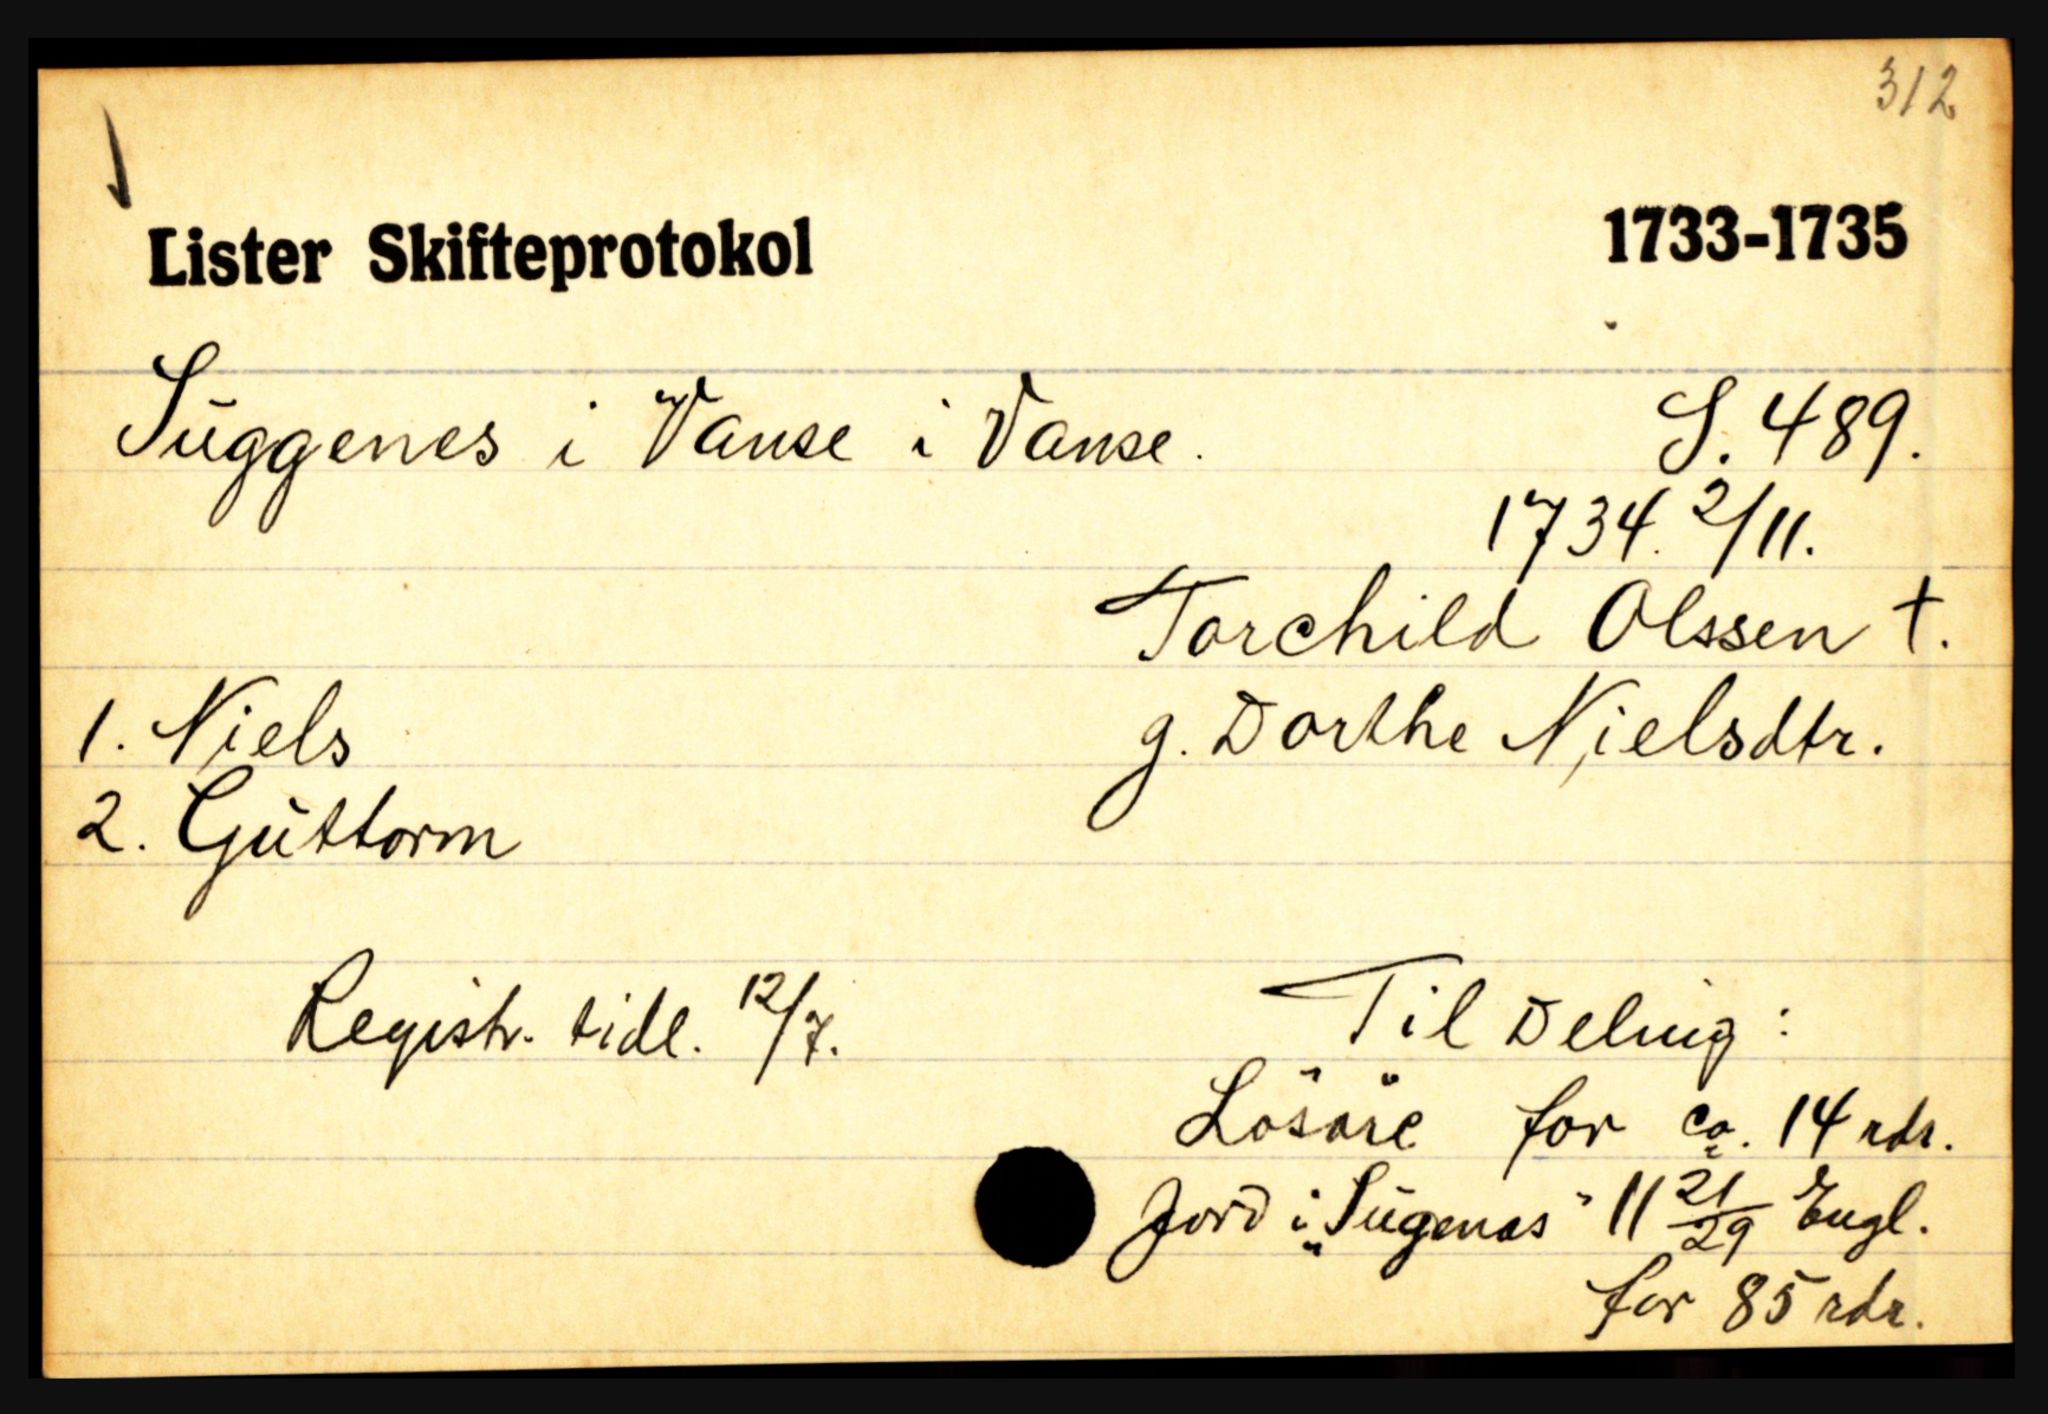 312
Lister Skifteprotokol 1733-1735
Suggenes i Vanse i Vanse. S. 489.
1734. 2/11.
Torchild Olssen †.
1. Niels g. Dorthe Nielsdtr.
2. Guttorm
Registr. tidl. 12/7. Til Deling:
Lösöre for ca. 14 rdr.
Jord i „Sugenas" 11 21/29 Engl.
for 85 rdr.